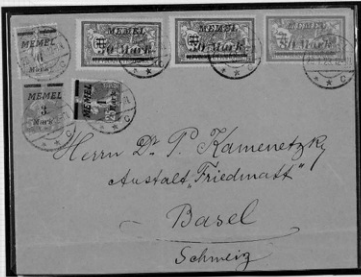 MEMEL
MEMEL
50 Mark
MEMEL
50 Mark
MEMEL
80 Mark
Mark
MEMEL
3
Mark
MEMEL
1
Herrn Dr. P. Kamenetzky
Anstalt „Friedmatt“
Basel
Schweiz